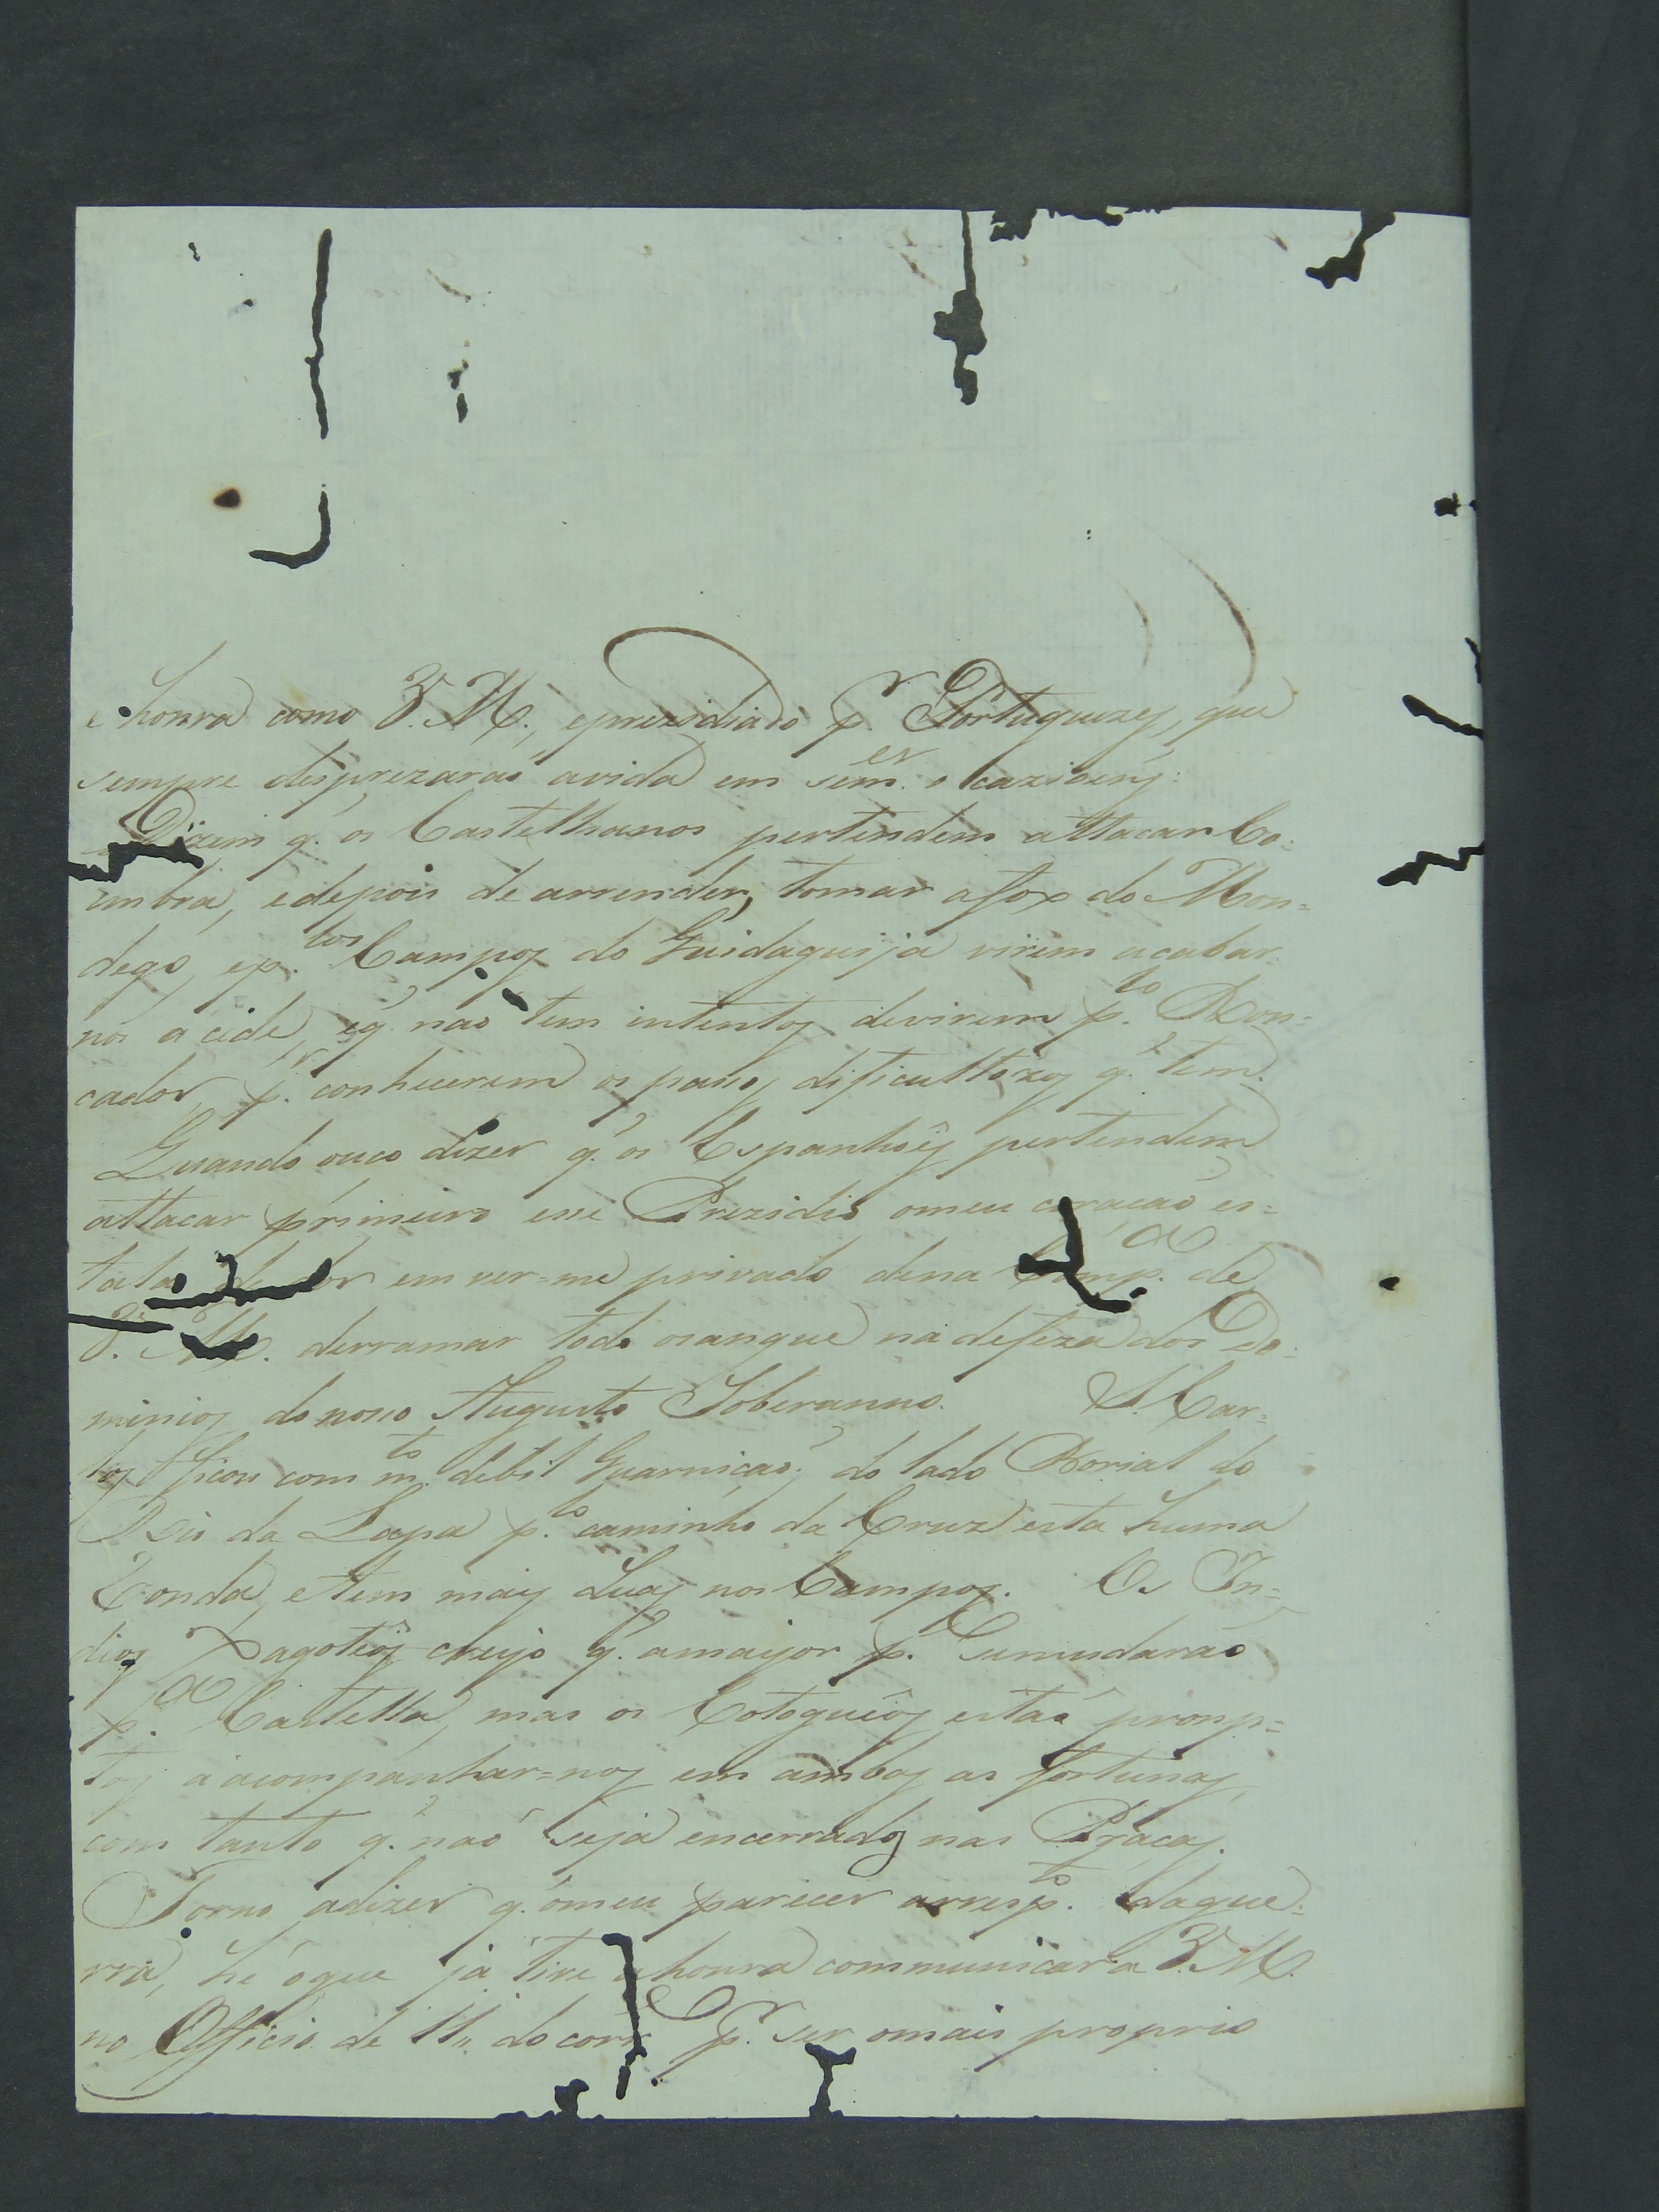 e honra como V. M., eprezidiado p.r Portuguezes, que
sempre desprezaraõ avida em sem.es ocazioens:
Dizem q. os Castelhanos pertendem attacar Co-
imbra, edepois de arrender, tomar afox do Mon=
dego, ep.los Campos do Guidaguija virem acabar-
nos a cede, eq. naõ tem intentos devirem p.lo Ron=
cador, p.r conhecerem os passos dificultozos q. tem.
Quando ouco dizer q. os Espanhoes pertendem
attacar primeiro esse Prezidio omeu coraçaõ es=
tala de dor em ver=me privado dena Comp.a de
V. M. derramar todo osangue na defeza dos Do-
minios do nosso Augusto Soberanno. S. Car-
los ficou com m.to debil Guarniçaõ; do lado Borial do
Rio da Lapa p.lo caminho da Cruz esta huma
Ronda, etem mais duas nos Campos. Os In=
dios Pagoteos creijo q. amaijor p. sumudaraõ
p.a Castella, mas os Cotogueos estaõ promp=
tos aacompanhar=nos em ambas as fortunas,
com tanto q. naõ seja encerrados nas Praças.
Torno adizer q. omeu parecer arresp.to dague-
rra, hé oque já tive a honra communicar a V. M.
no Officio de 11,, do corr.e p.r ser omais proprio